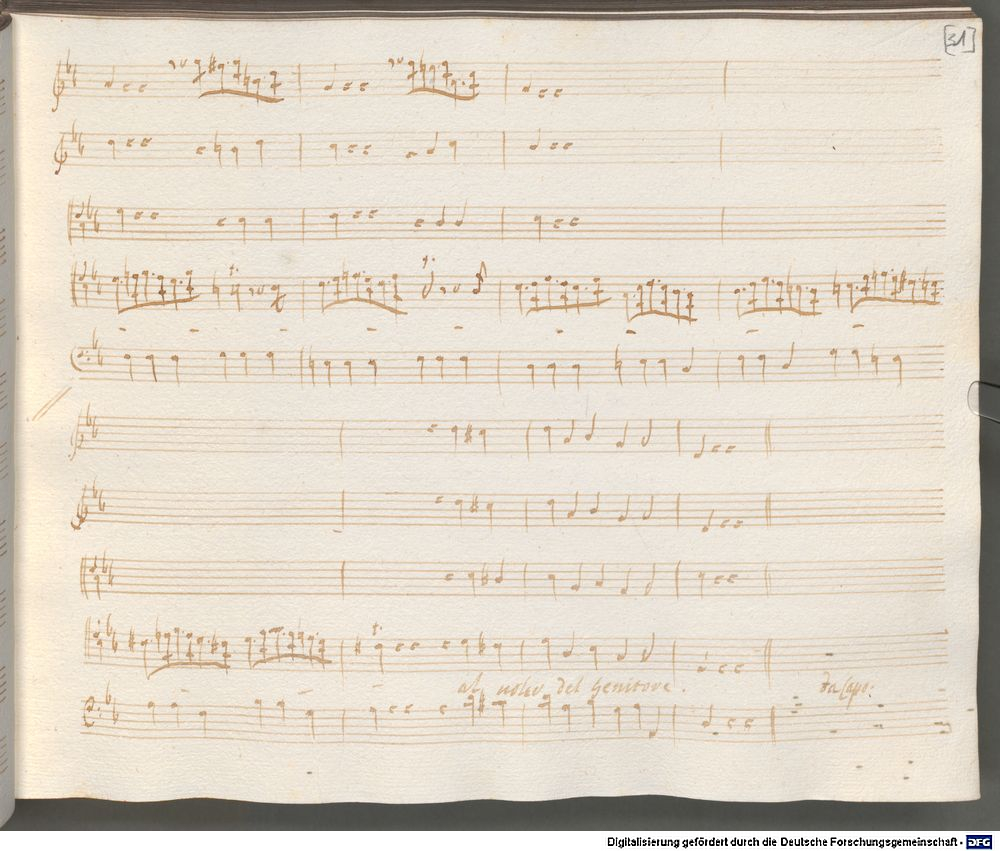 [31]
al voler del Genitore.
Da Capo:
Digitalisierung gefördert durch die Deutsche Forschungsgemeinschaft - DFG